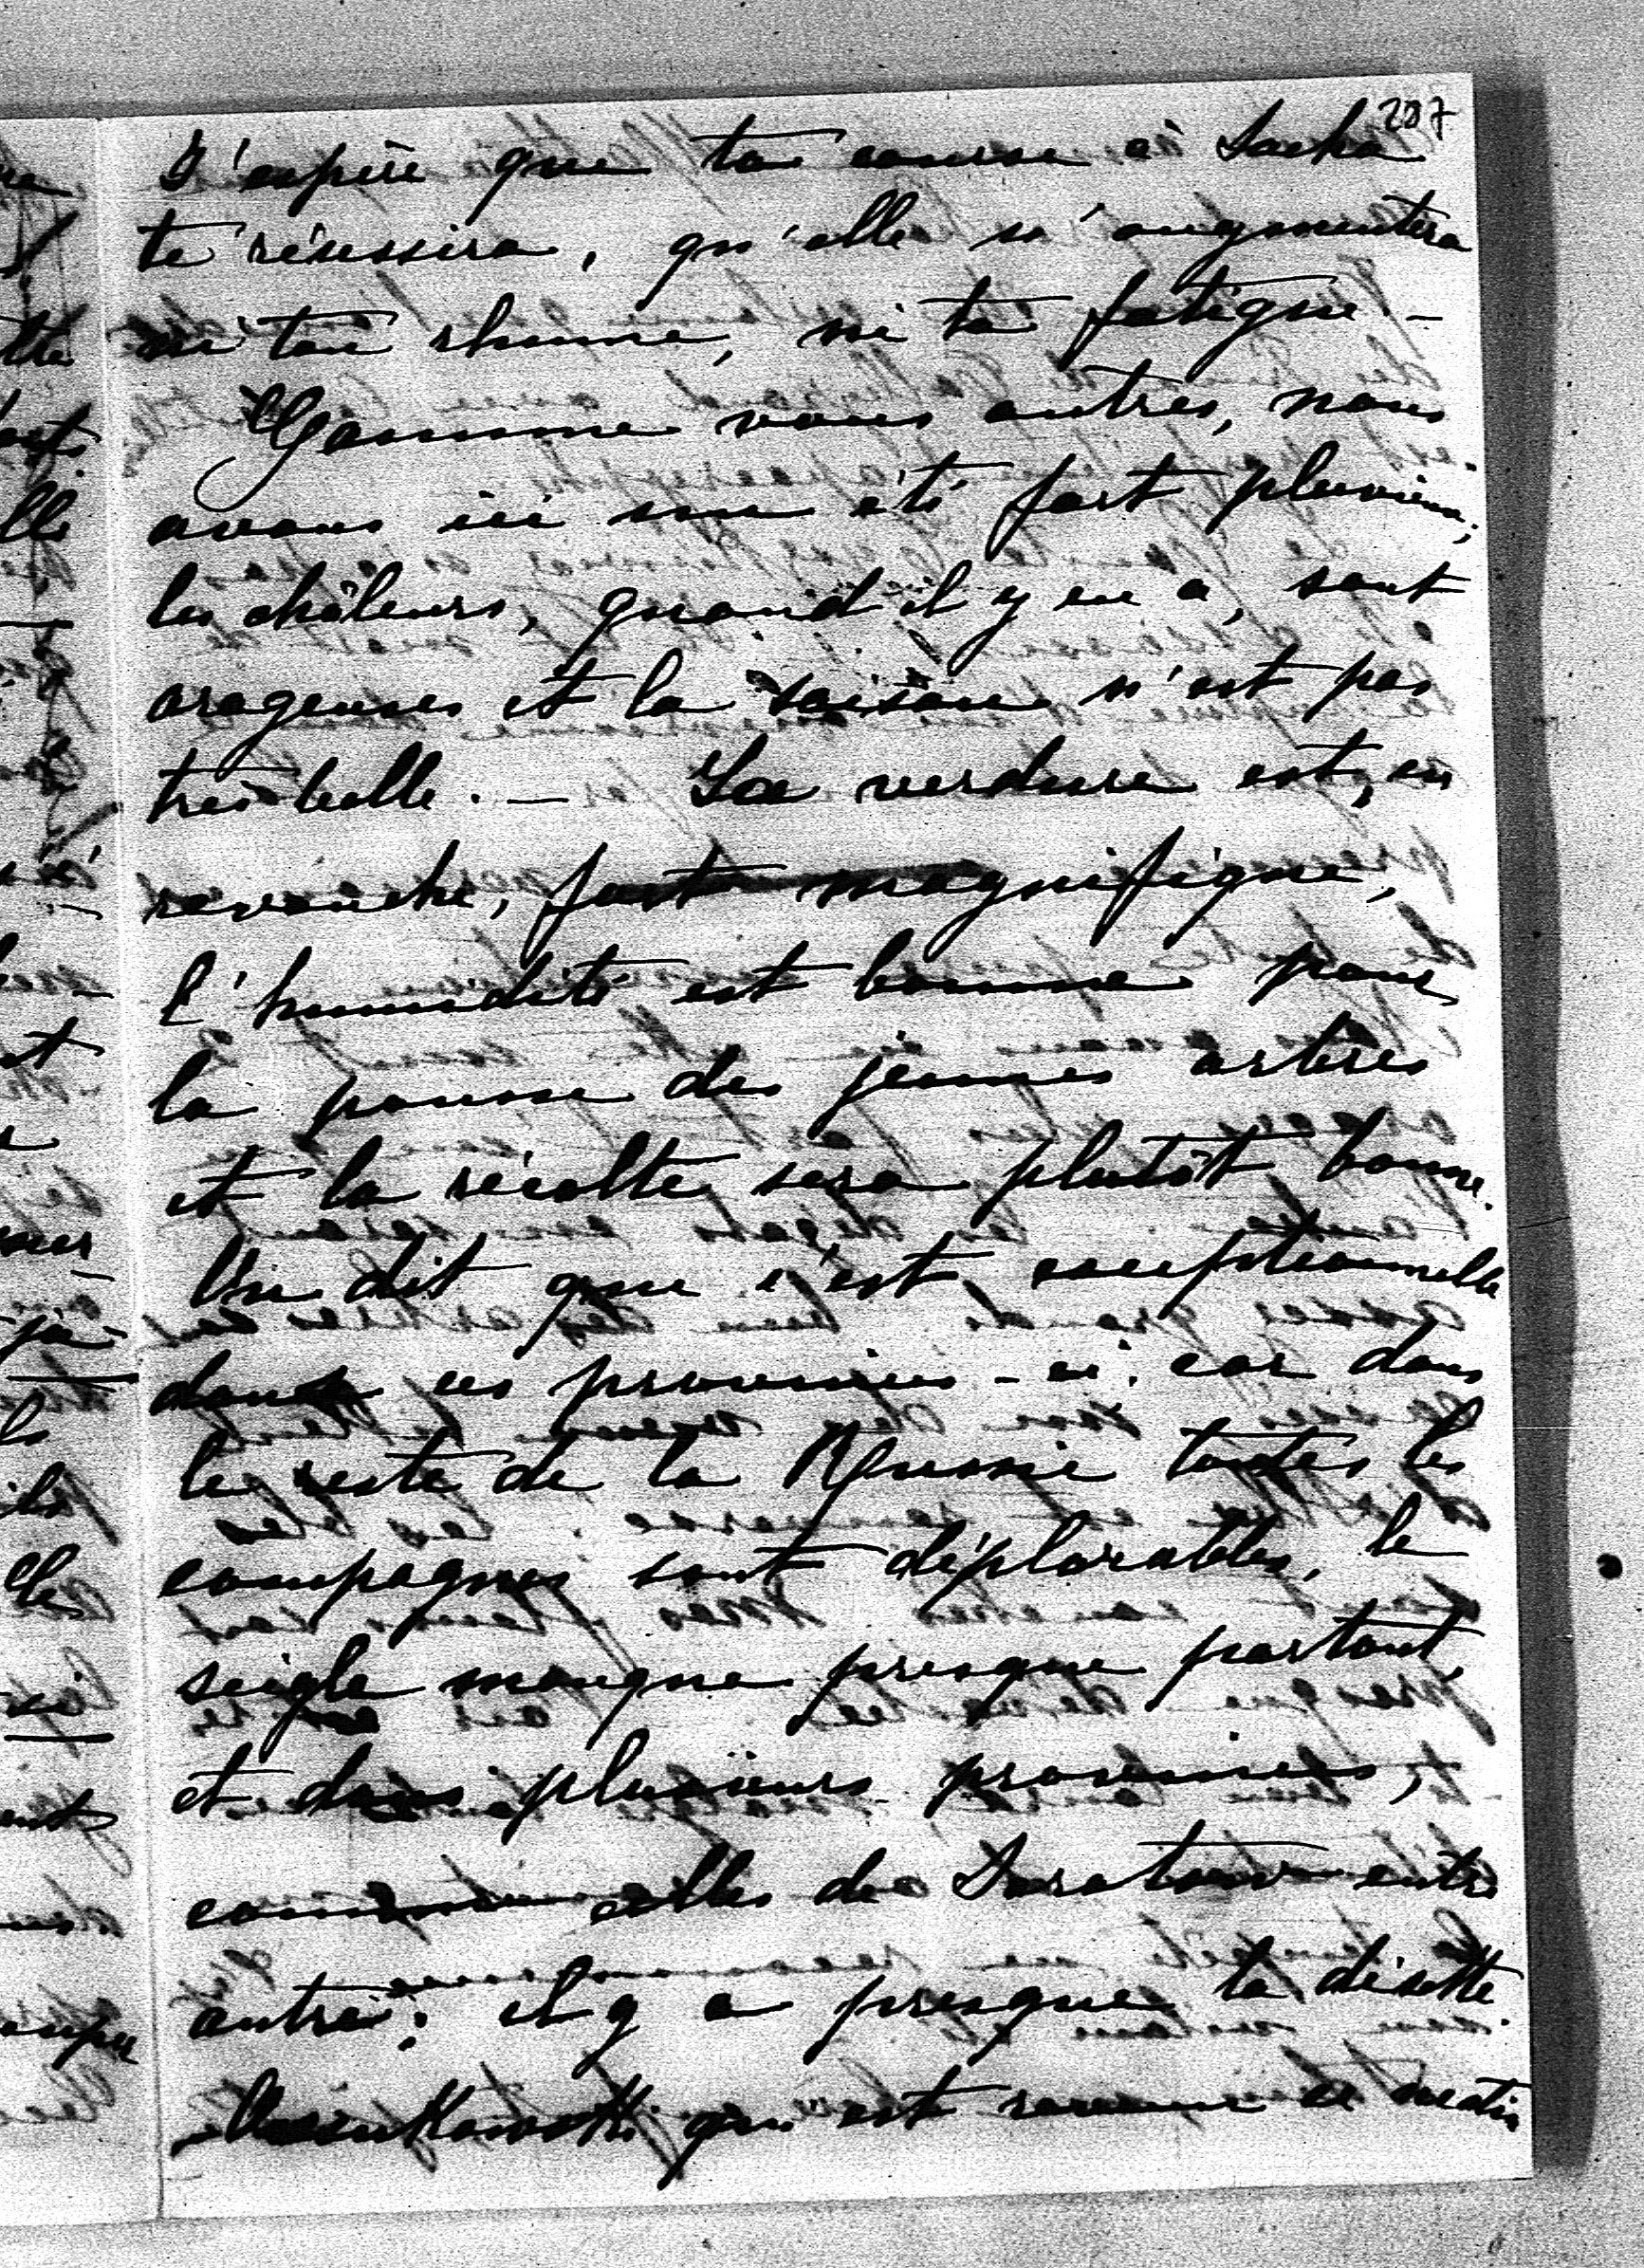 207
J'espère que ta course à Sacha
te réussira, qu'elle n'augmentera
ni ton rhume, ni ta fatigue –
Comme vous autres, nous
avons ici un été fort pluvieux,
les châleurs, quand il y en a, sont
orageuses et la saison n'est pas
très belle. – La verdure est, en
revanche, magnifique,
l'humidité est bonne pour
la pousse des jeunes arbres
et la récolte sera plutôt bonne.
On dit que c'est exceptionnelle
dans ces provinces-ci: car dans
le reste de la Russie toutes les
campagnes sont déplorables, le
seigle manque presque partout,
et dans plusieurs provinces,
comme celles de Saratow entre
autre; il y a presque la disette.
qui est revenu ce matin